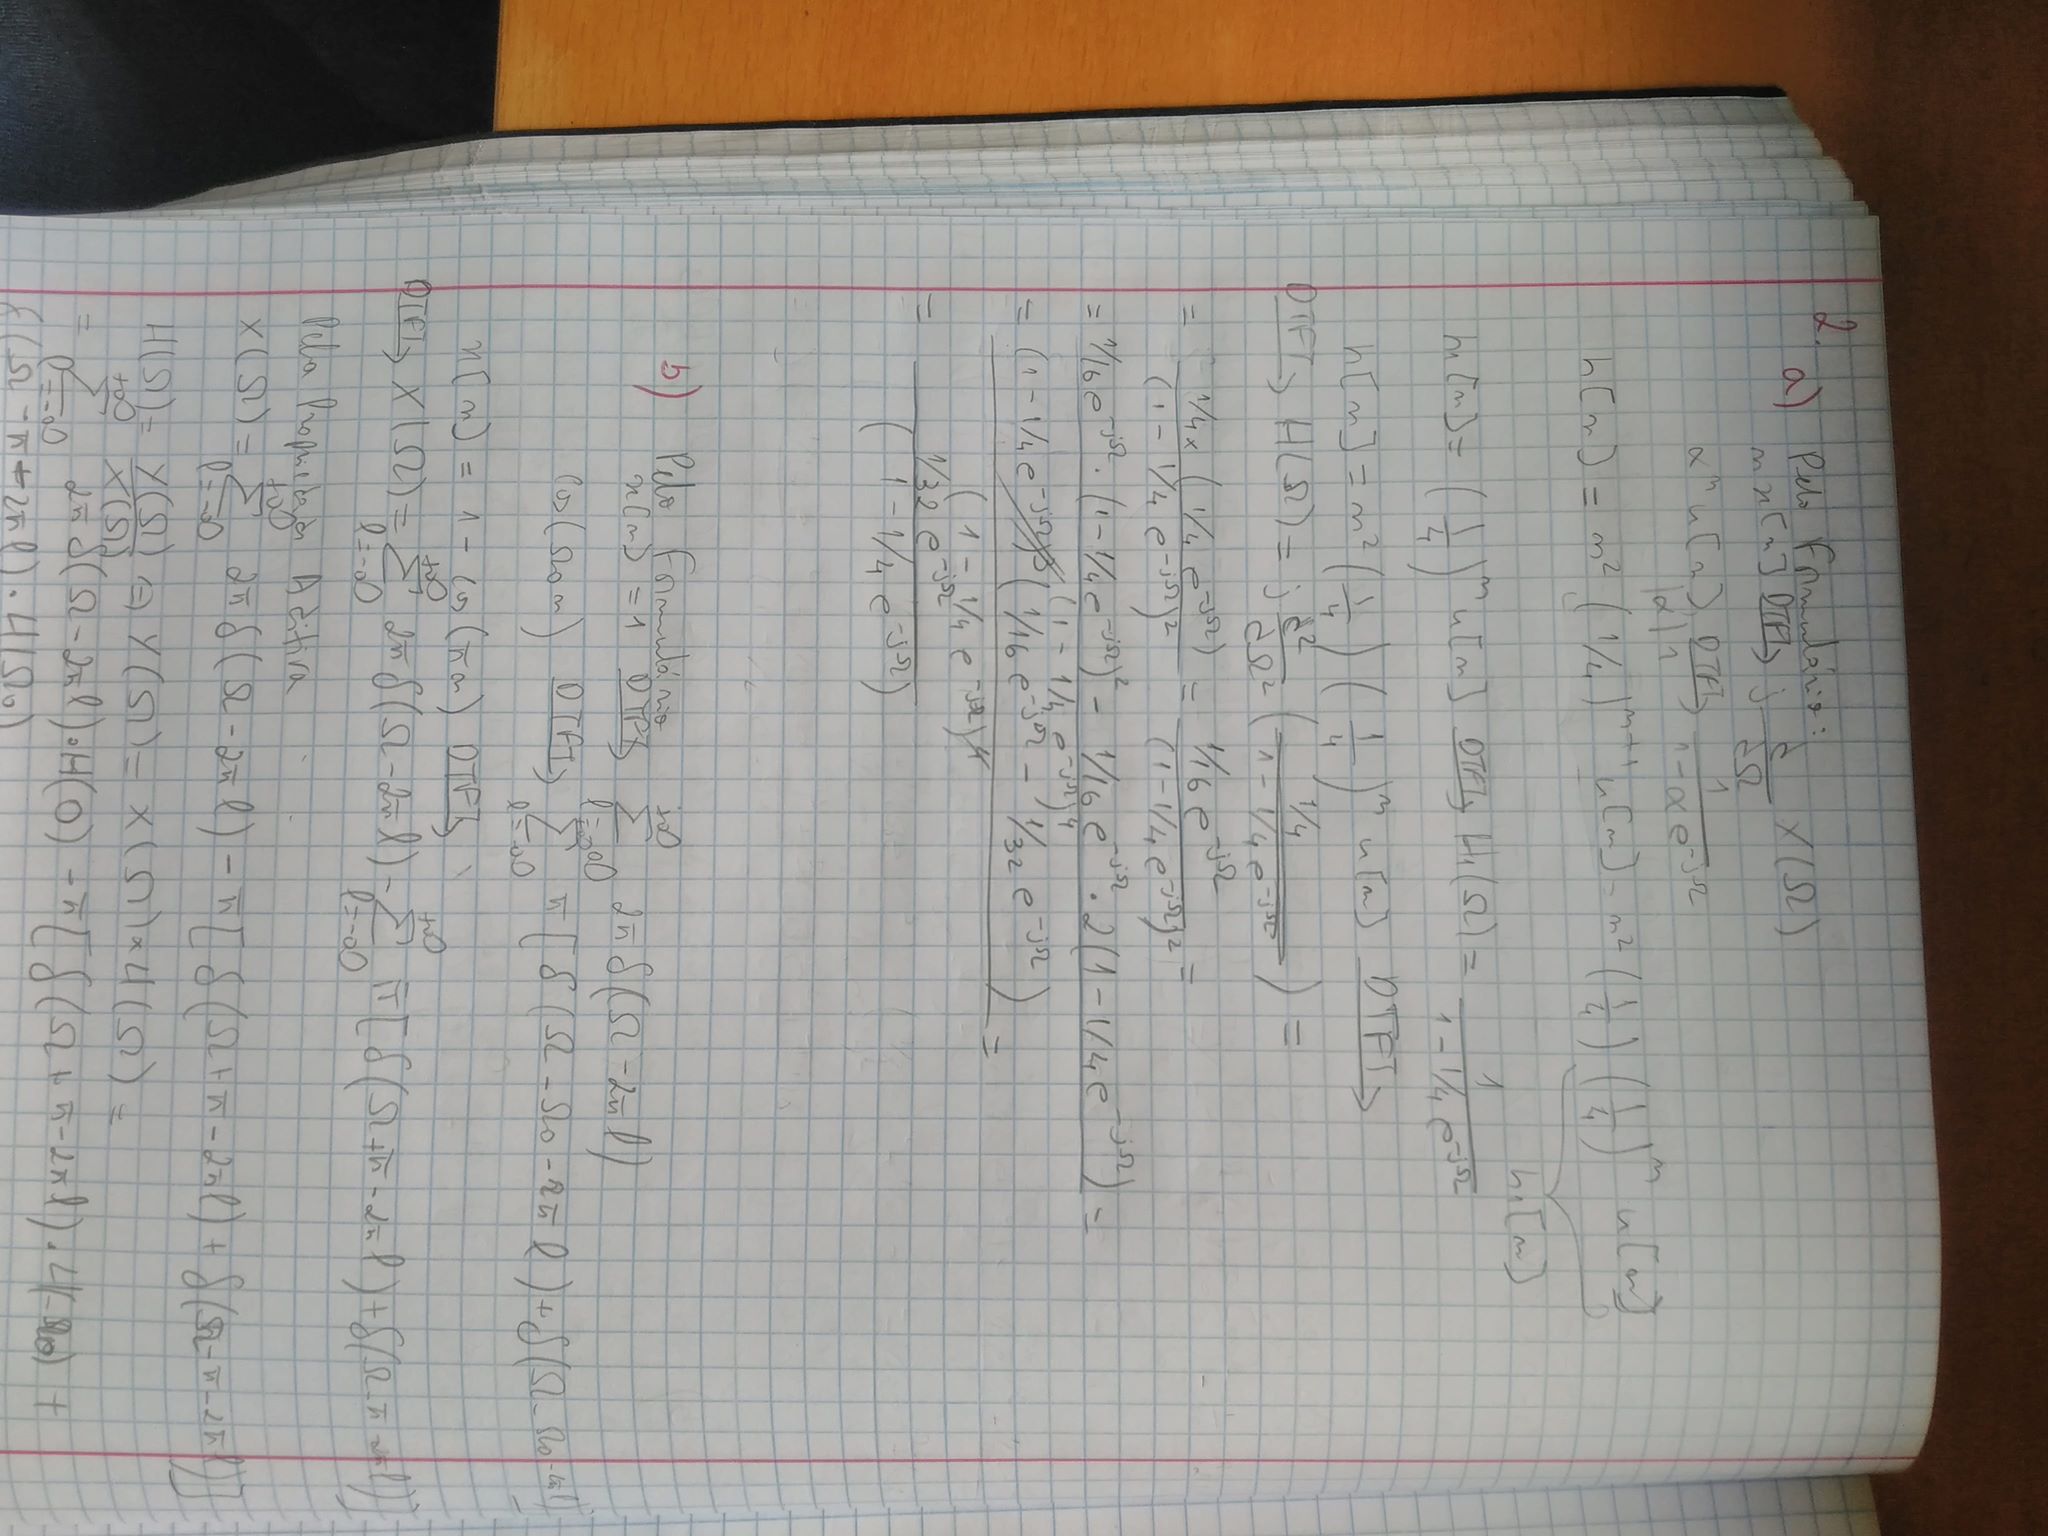 2.
a) Pelo Formulário:
n x[n] DTFT→ j d/dΩ X(Ω)
α^n u[n] DTFT→ 1/(1-αe^-jΩ)
|α| 1
h[n] = n² (1/4)^n+1 u[n] = n² (1/4) (1/4)^n u[n]
h₁[n]
h₁[n] = (1/4)^n u[n] DTFT→ H₁(Ω) = 1/(1-1/4 e^-jΩ)
h[n] = n² (1/4) (1/4)^n u[n] DTFT→
DTFT→ H(Ω) = j d²/dΩ² ( 1/4 / (1-1/4 e^-jΩ) ) =
= 1/4 × (1/4 e^-jΩ) / (1-1/4 e^-jΩ)² = 1/16 e^-jΩ / (1-1/4 e^-jΩ)² =
= 1/16 e^-jΩ · (1-1/4 e^-jΩ)² - 1/16 e^-jΩ · 2(1-1/4 e^-jΩ) / (1-1/4 e^-jΩ)⁴ =
= (1-1/4 e^-jΩ)³ (1/16 e^-jΩ - 1/32 e^-jΩ) / (1-1/4 e^-jΩ)⁴ =
= 1/32 e^-jΩ / (1-1/4 e^-jΩ)
b) Pelo Formulário
x[n] = 1 DTFT→ Σ_{l=-∞}^{+∞} 2π δ(Ω-2πl)
cos(Ω₀n) DTFT→ Σ_{l=-∞}^{+∞} π[δ(Ω-Ω₀-2πl)+δ(Ω-Ω₀-2πl)]
x[n] = 1-cos(πn) DTFT→
DTFT→ X(Ω) = Σ_{l=-∞}^{+∞} 2π δ(Ω-2πl) - Σ_{l=-∞}^{+∞} π[δ(Ω+π-2πl)+δ(Ω-π-2πl)]
Pela Propriedade Aditiva
X(Ω) = Σ_{l=-∞}^{+∞} 2π δ(Ω-2πl) - π[δ(Ω+π-2πl) + δ(Ω-π-2πl)]
H(Ω) = Y(Ω)/X(Ω) ⇔ Y(Ω) = X(Ω) × H(Ω) =
= Σ_{l=-∞}^{+∞} 2π δ(Ω-2πl)·H(0) - π[δ(Ω+π-2πl)·H(-Ω₀) +
δ(Ω-π-2πl)·H(Ω₀)